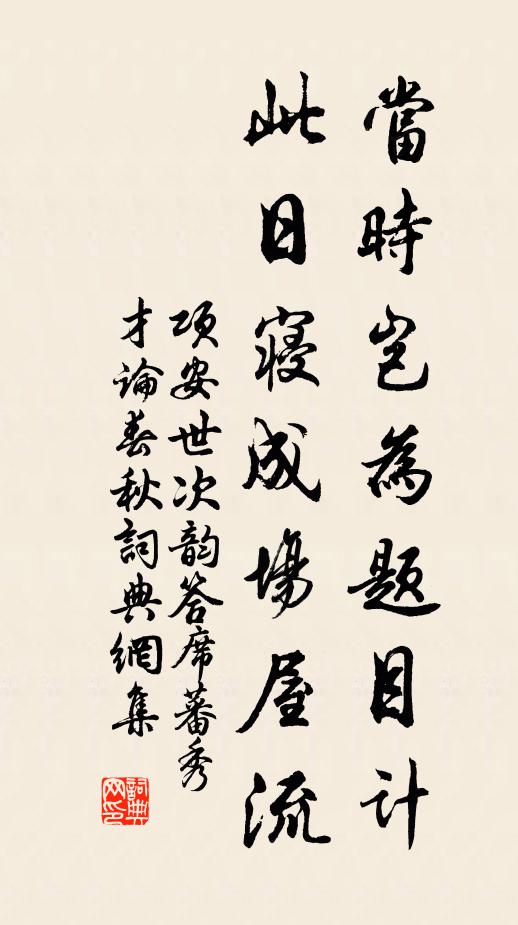 當時豈為題目計
此日寖成場屋流
項安世次韵答席蕃秀
才論春秋詞典網集
詞典
网印